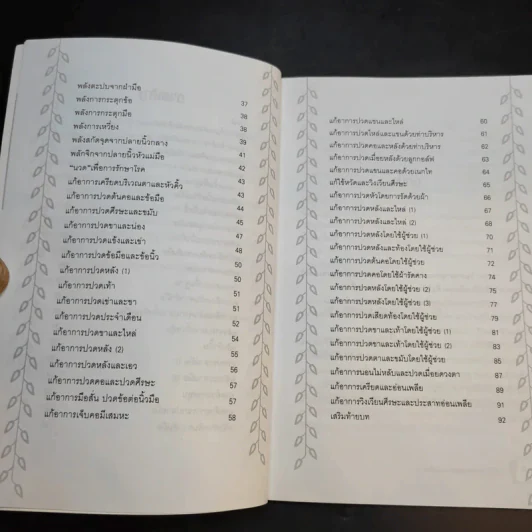 พลังตะปบจากฝ่ามือ
พลังการกระตุกข้อ 37
พลังการกระตุกมือ 38
พลังการเหวี่ยง 38
พลังสกัดจุดจากปลายนิ้วกลาง 39
พลักจิกจากปลายนิ้วหัวแม่มือ 41
"นวด"เพื่อการรักษาโรค 42
แก้อาการเครียดบริเวณตาและหัวคิ้ว 43
แก้อาการปวดต้นคอและข้อมือ 43
แก้อาการปวดศีรษะและขมับ 44
แก้อาการปวดขาและน่อง 45
แก้อาการปวดแข้งและเข่า 47
แก้อาการปวดข้อมือและข้อนิ้ว 48
แก้อาการปวดหลัง (1) 50
แก้อาการปวดเท้า 50
แก้อาการปวดเข่าและขา 51
แก้อาการปวดประจำเดือน 51
แก้อาการปวดขาและไหล่ 52
แก้อาการปวดหลัง (2) 54
แก้อาการปวดหลังและเอว 55
แก้อาการปวดคอและปวดศีรษะ 56
แก้อาการมือสั่น ปวดข้อต่อนิ้วมือ 57
แก้อาการเจ็บคอมีเสมหะ 57
58
แก้อาการปวดแขนและไหล่ 60
แก้อาการปวดไหล่และแขนด้วยท่าบริหาร 61
แก้อาการปวดคอและหลังด้วยท่าบริหาร 62
แก้อาการปวดเมื่อยหลังด้วยลูกกอล์ฟ 63
แก้อาการปวดแขนและคอด้วยเนกไท 64
แก้ไข้หวัดและวิงเวียนศีรษะ 65
แก้อาการปวดหัวโดยการรัดด้วยผ้า 66
แก้อาการปวดหลังและไหล่ (1) 67
แก้อาการปวดหลังและไหล่ (2) 68
แก้อาการปวดหลังโดยใช้ผู้ช่วย (1) 70
แก้อาการปวดหลังและท้องโดยใช้ผู้ช่วย 71
แก้อาการปวดต้นคอโดยใช้ผู้ช่วย 72
แก้อาการปวดคอโดยใช้ผ้ารัดคาง 74
แก้อาการปวดหลังโดยใช้ผู้ช่วย (2) 75
แก้อาการปวดหลังโดยใช้ผู้ช่วย (3) 77
แก้อาการปวดเสียดท้องโดยใช้ผู้ช่วย 79
แก้อาการปวดขาและเท้าโดยใช้ผู้ช่วย (1) 81
แก้อาการปวดขาและเท้าโดยใช้ผู้ช่วย (2) 83
แก้อาการปวดตาและขมับโดยใช้ผู้ช่วย 85
แก้อาการนอนไม่หลับและปวดเมื่อยดวงตา 87
แก้อาการเครียดและอ่อนเพลีย 89
แก้อาการวิงเวียนศีรษะและประสาทอ่อนเพลีย 91
เสริมท้ายบท 92